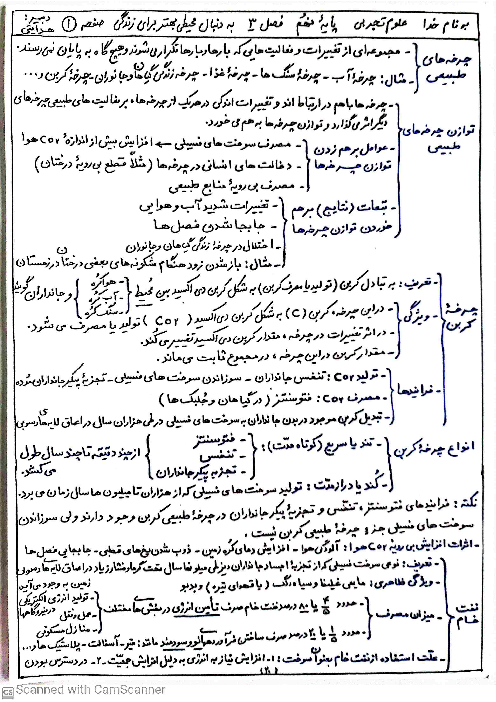 به نام خدا علوم تجربی پایهٔ نهم فصل ۳ به دنبال محیطی بهتر برای زندگی صفحه ۱
چرخه‌های طبیعی
- مجموعه‌ای از تغییرات و فعالیت هایی که بارها و بارها تکرار می شوند و هیچ گاه به پایان نمی رسند.
- مثال: چرخهٔ آب - چرخهٔ سنگ ها - چرخهٔ غذا - چرخهٔ زندگی گیاهان و جانوران - چرخهٔ کربن و...
توازن چرخه‌های طبیعی
- چرخه ها باهم در ارتباط اند و تغییرات اندکی در هریک از چرخه ها، بر فعالیت های طبیعی چرخه‌های
دیگر اثر می گذارد و توازن چرخه ها به هم می خورد.
- عوامل برهم زدن توازن چرخه‌ها
- مصرف سوخت های فسیلی ← افزایش بیش از اندازهٔ CO2 هوا
- دخالت های انسانی در چرخه ها (مثلاً قطع بی رویهٔ درختان)
- مصرف بی رویهٔ منابع طبیعی
- تبعات (نتایج) برهم خوردن توازن چرخه‌ها
- تغییرات شدید آب و هوایی
- جابجا شدن فصل ها
- اختلال در چرخهٔ زندگی گیاهان و جانوران
- مثال: باز شدن زود هنگام شکوفه های بعضی درختان در زمستان
چرخهٔ کربن
- تعریف: به تبادل کربن (تولید یا مصرف کربن) به شکل کربن دی اکسید بین محیط
- هواکره
- آب کره
- سنگ کره
و جانداران گویند
- ویژگی
- در این چرخه، کربن (C) به شکل کربن دی اکسید (CO2) تولید یا مصرف می شود.
- در اثر تغییرات در چرخه، مقدار کربن دی اکسید تغییر می کند.
- مقدار کربن در این چرخه، در مجموع ثابت می ماند.
- فرایندها
- تولید CO2: تنفس جانداران - سوزاندن سوخت های فسیلی - تجزیهٔ پیکر جانداران مرده
- مصرف CO2: فتوسنتز (در گیاهان و جلبک ها)
- تبدیل کربن موجود در بدن جانداران به سوخت های فسیلی در طی هزاران سال در اعماق لایه‌های رسوبی
انواع چرخهٔ کربن
- تند یا سریع (کوتاه مدت):
- فتوسنتز
- تنفس
- تجزیه پیکر جانداران
از چند دقیقه تا چند سال طول می کشند.
- کُند یا دراز مدت: تولید سوخت های فسیلی که از هزاران تا میلیون ها سال زمان می برد.
نکته: فرایندهای فتوسنتز، تنفس و تجزیهٔ پیکر جانداران در چرخهٔ طبیعی کربن وجود دارند ولی سوزاندن
سوخت های فسیلی جزء چرخهٔ طبیعی کربن نیست.
- اثرات افزایش بی رویهٔ CO2 هوا: آلودگی هوا - افزایش دمای کرهٔ زمین - ذوب شدن یخ های قطبی - جابجایی فصل ها
نفت خام
- تعریف: نوعی سوخت فسیلی که از تجزیهٔ اجساد جانداران در طی میلیون ها سال تحت گرما و فشار زیاد در اعماق لایه‌های رسوبی
زمین به وجود می آید
- ویژگی ظاهری: مایعی غلیظ و سیاه رنگ (یا قهوه‌ای تیره) و بدبو
- میزان مصرف
- حدود ۴/۵ یا ۸۰ درصد نفت خام صرف تأمین انرژی در بخش های مختلف
- تولید انرژی الکتریکی در نیروگاهها
- حمل و نقل
- منازل مسکونی
- حدود ۱/۵ یا ۲۰ درصد صرف ساختن فرآورده‌های سودمند مانند: قیر - آسفالت - پلاستیک ها و...
- علت استفاده از نفت خام بعنوان سوخت: ۱- افزایش نیاز به انرژی به دلیل افزایش جمعیت - ۲- در دسترس بودن
(۱)
CS Scanned with CamScanner